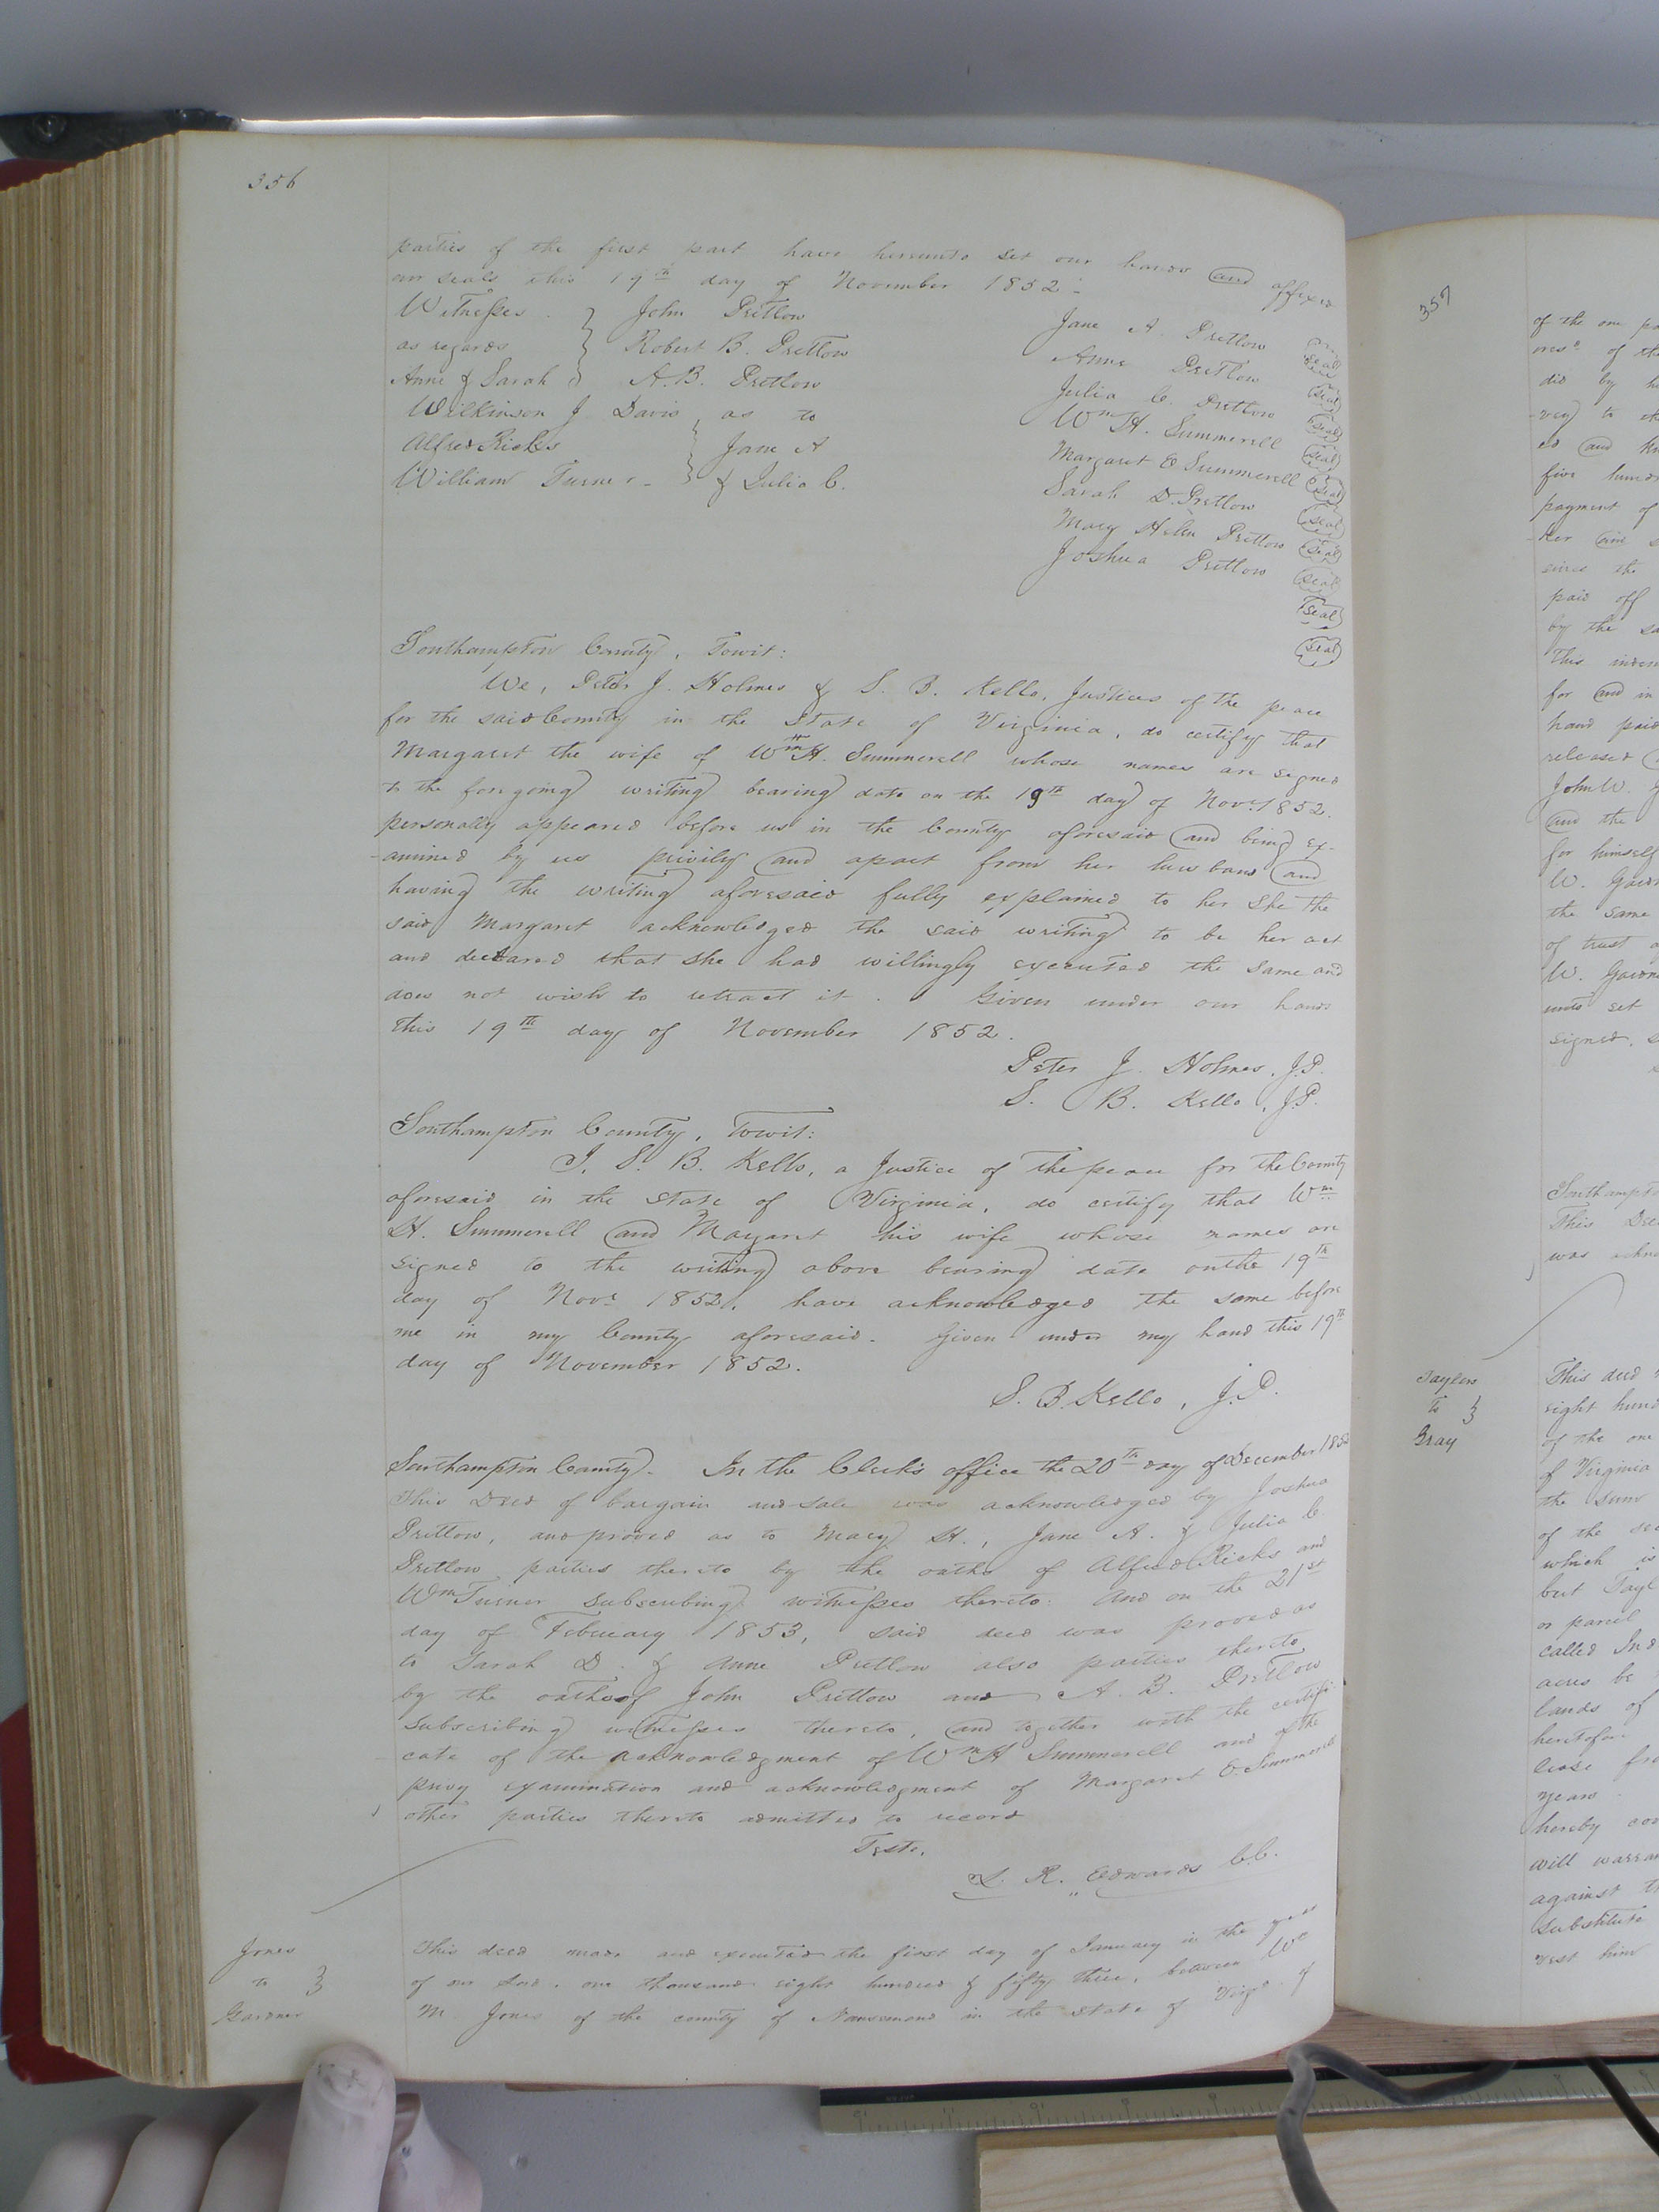 356
parties of the first part have hereunto set our hands and affixed
our seals this 19th day of November 1852.
Witnesses } John Pretlow
as regards } Robert B. Pretlow
Anne & Sarah } A. B. Pretlow
Wilkinson J Davis, as to
Alfred Ricks } Jane A
William Turner } & Julia C.
Jane A. Pretlow seal
Anne Pretlow seal
Julia C. Pretlow seal
Wm H. Summerell seal
Margaret E Summerell seal
Sarah D. Pretlow seal
Mary Helen Pretlow seal
Joshua Pretlow seal
seal
seal
Southampton County, Towit:
We, Peter J. Holmes & S. B. Kello, Justices of the peace
for the said County in the State of Virginia, do certify that
Margaret the wife of Wm H. Summerell whose names are signed
to the foregoing writing bearing date on the 19th day of Novr 1852.
personally appeared before us in the County aforesaid and being ex-
-amined by us privily and apart from her husband and
having the writing aforesaid fully explained to her she the
said Margaret acknowledged the said writing to be her act
and declared that she had willingly executed the same and
does not wish to retract it. Given under our hands
this 19th day of November 1852.
Peter J. Holmes, J.P.
S. B. Kello, J.P.
Southampton County, Towit:
I, S. B. Kello, a Justice of the peace for the County
aforesaid in the State of Virginia, do certify that Wm
H. Summerell and Margaret his wife whose names are
signed to the writing above bearing date on the 19th
day of Novr 1852, have acknowledged the same before
me in my County aforesaid. Given under my hand this 19th
day of November 1852.
S. B. Kello, J.P.
Southampton County. In the Clerk's office the 20th day of December 1852
This Deed of bargain and sale was acknowledged by Joshua
Pretlow, and proved as to Mary H., Jane A. & Julia C.
Pretlow parties thereto by the oaths of Alfred Ricks and
Wm Turner subscribing witnesses thereto. And on the 21st
day of February 1853, said deed was proved as
to Sarah D. & Anne Pretlow also parties thereto,
by the oaths of John Pretlow and A. B. Pretlow
subscribing witnesses thereto, and together with the certifi-
cate of the acknowledgment of Wm H Summerell and of the
privy examination and acknowledgment of Margaret E. Summerell
other parties thereto admitted to record
Teste,
L. R. Edwards C.C.
Jones
to }
Gardner
This deed made and executed the first day of January in the year
of our Lord, one thousand eight hundred & fifty three, between Wm
M. Jones of the county of Nansemond in the State of Virga of
357
of the one
of the
did by
to
ed and
five
payment of
her and
since the
paid off
by the
This
for and in
hand paid
released
John W.
and the
for himself
W.
the same
of trust
W.
unto set
signed,
This
was
Taylor
to }
Gray
This deed
eight
of the one
of Virginia
the sum
of the
which is
but
or parcel
called
acres be
lands of
heretofore
lease
years
hereby
will
against
substitute
vest him